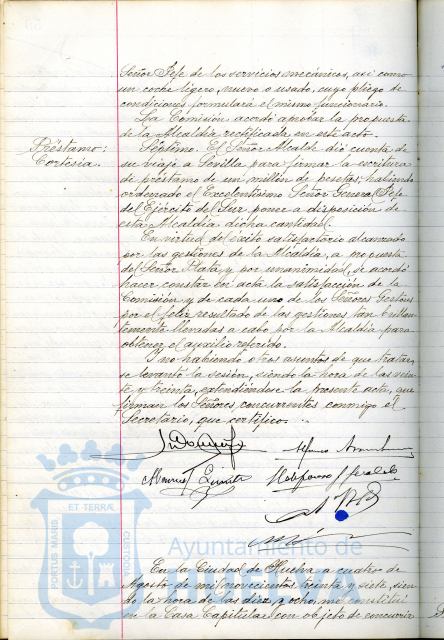 Señor Jefe de los servicios mecánicos, así como
un coche ligero, nuevo o usado, cuyo pliego de
condiciones formulará el mismo funcionario.
La Comisión acordó aprobar la propuesta
de la Alcaldía rectificada en este acto.
Préstamo:
Cortesía.
Séptimo. El Señor Alcalde dió cuenta de
su viaje a Sevilla para firmar la escritura
de préstamo de un millón de pesetas, habiendo
ordenado el Excelentísimo Señor General Jefe
del Ejército del Sur poner a disposición de
esta Alcaldía dicha cantidad.
En virtud del éxito satisfactorio alcanzado
por las gestiones de la Alcaldía, a propuesta
del Señor Plata, y por unanimidad, se acordó
hacer constar en acta la satisfacción de la
Comisión y de cada uno de los Señores Gestores
por el feliz resultado de las gestiones tan brillan-
temente llevadas a cabo por la Alcaldía para
obtener el auxilio referido.
Y no habiendo otros asuntos de que tratar,
se levantó la sesión, siendo la hora de las
y treinta, extendiéndose la presente acta, que
firman los Señores concurrentes conmigo el
Secretario, que certifico.
ET TERRÆ
PORTUS MARIS
CUSTODIA
Ayuntamiento de
HUELVA
En la Ciudad de Huelva, a cuatro de
Agosto de mil novecientos treinta y siete, sien-
do la hora de las diez y ocho, me constituí
en la Casa Capitular con objeto de concurrir